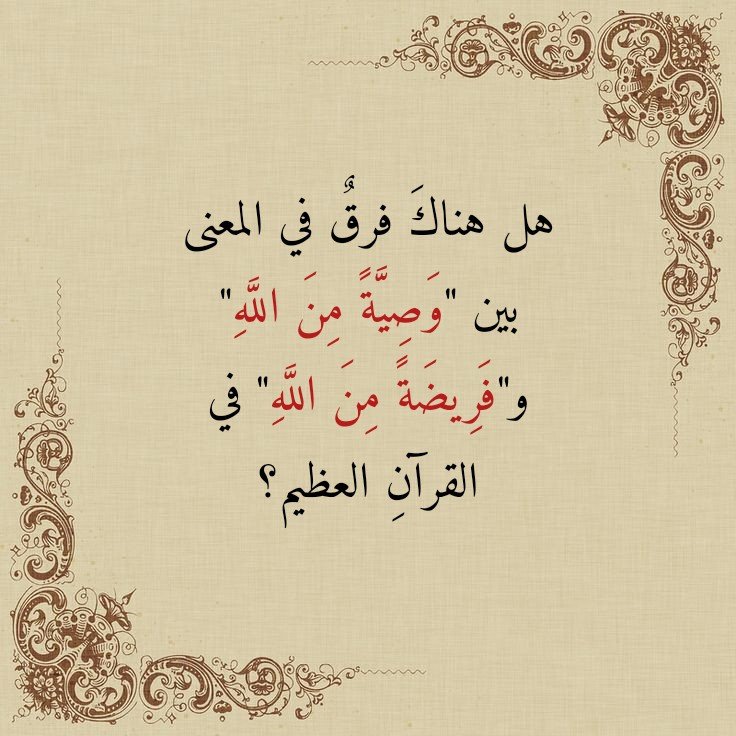 هل هناكَ فرقٌ في المعنى
بين "وَصِيَّةً مِنَ اللَّهِ"
و"فَرِيضَةً مِنَ اللَّهِ" في
القرآنِ العظيم؟